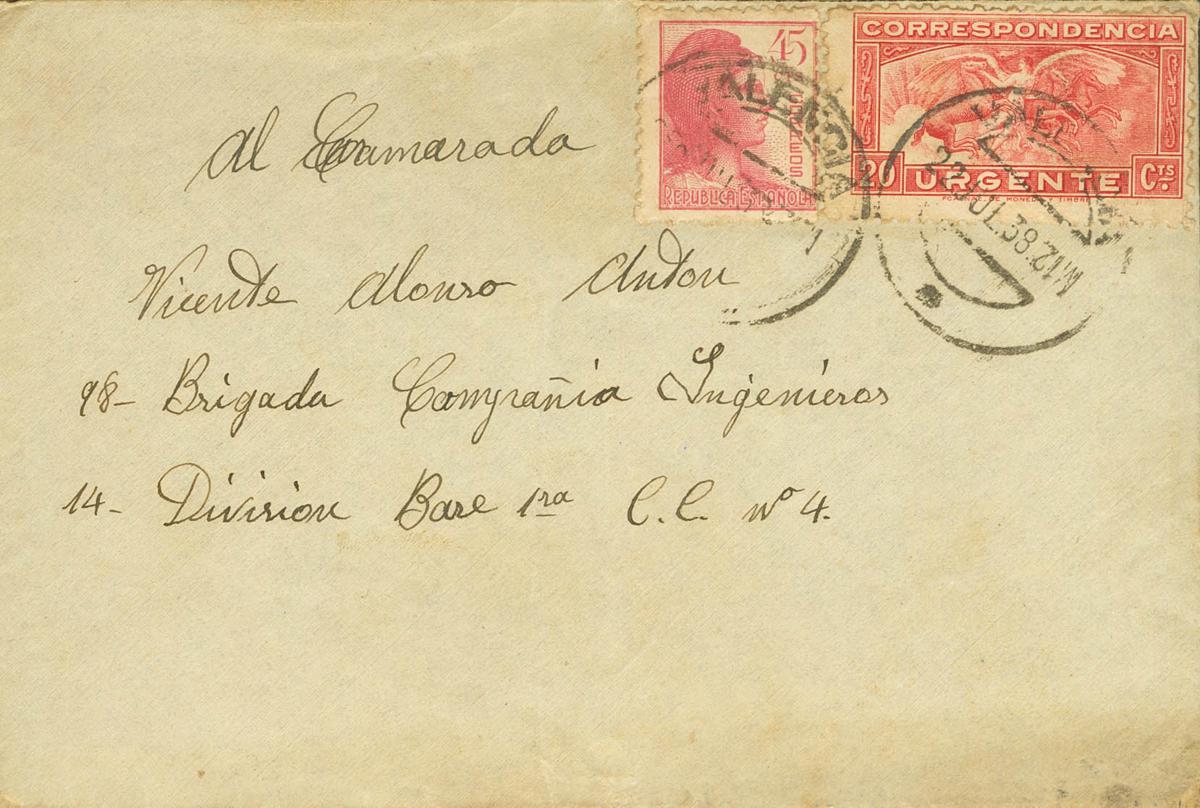 45
CORREOS
REPUBLICA ESPAÑOLA
CORRESPONDENCIA
20 URGENTE CTS
VALENCIA
22 JUL.38.21M
Al Camarada
Vicente Alonso Anton
98- Brigada Compañia Ingenieros
14- Division Base 1ra C.C. nº 4.